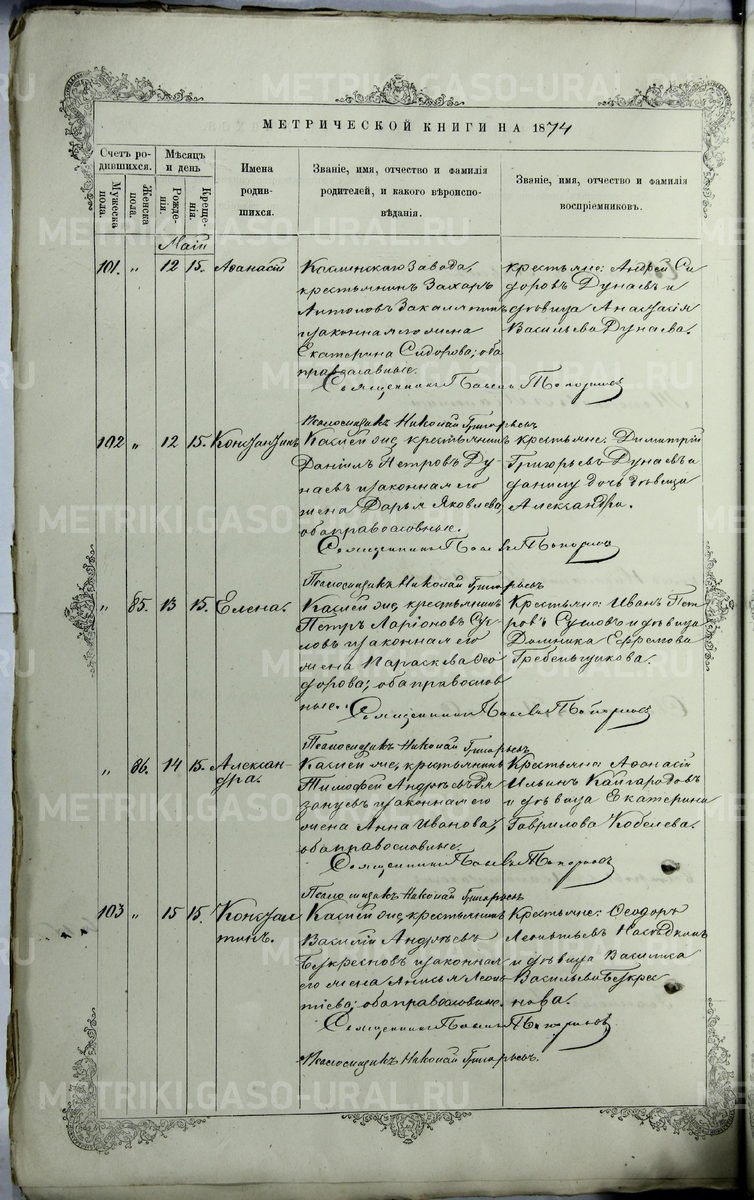 МЕТРИЧЕСКОЙ КНИГИ НА 1874
Счетъ родившихся.
Мужеска пола.
Женска пола.
Мѣсяцъ и день
Рожденія.
Крещенія.
Имена родившихся.
Званіе, имя, отчество и фамилія родителей, и какого вѣроисповѣданія.
Званіе, имя, отчество и фамилія воспріемниковъ.
Май
101. " 12 15. Аѳанасій
Каслинскаго завода,
крестьянинъ Захаръ
Антоновъ
и законная его жена
Екатерина Сидорова; оба
православные.
крестьяне: Андрей Си-
доровъ Дунаевъ и
дѣвица Анастасія
Васильева Дунаева.
Священникъ Павелъ Топорковъ
Псаломщикъ Николай Григорьевъ
102 " 12 15. Константинъ
крестьянинъ
Даніилъ Петровъ Ду-
наевъ и законная его
жена Дарья Яковлева,
оба православные.
крестьяне: Димитрій
Григорьевъ Дунаевъ и
дочь дѣвица
Александра.
Священникъ Павелъ Топорковъ
Псаломщикъ Николай Григорьевъ
" 85. 13 15. Елена.
крестьянинъ
Петръ Ларіоновъ Су-
ловъ и законная его
жена Параскева Ѳео-
дорова; оба православ-
ные.
Крестьяне: Иванъ Пет-
ровъ и дѣвица
Домника Ефремова
Гребеньщикова.
Священникъ Павелъ Топорковъ
Псаломщикъ Николай Григорьевъ
" 86. 14 15. Алексан-
дра.
крестьянинъ
Тимофей Андреевъ Ря-
занцевъ и законная его
жена Анна Иванова,
оба православные.
Крестьяне: Аѳанасій
Ильинъ Кайгородовъ
и дѣвица Екатерина
Гаврилова Кобелева.
Священникъ Павелъ Топорковъ
Псаломщикъ Николай Григорьевъ
103 " 15 15. Констан-
тинъ.
крестьянинъ
Василій Андреевъ
и законная
его жена Анисья Леон-
тіева; оба православные.
Крестьяне: Ѳеодоръ
Леонтьевъ
и дѣвица Васильева
Священникъ Павелъ Топорковъ
Псаломщикъ Николай Григорьевъ.
METRIKI.GASO-URAL.RU